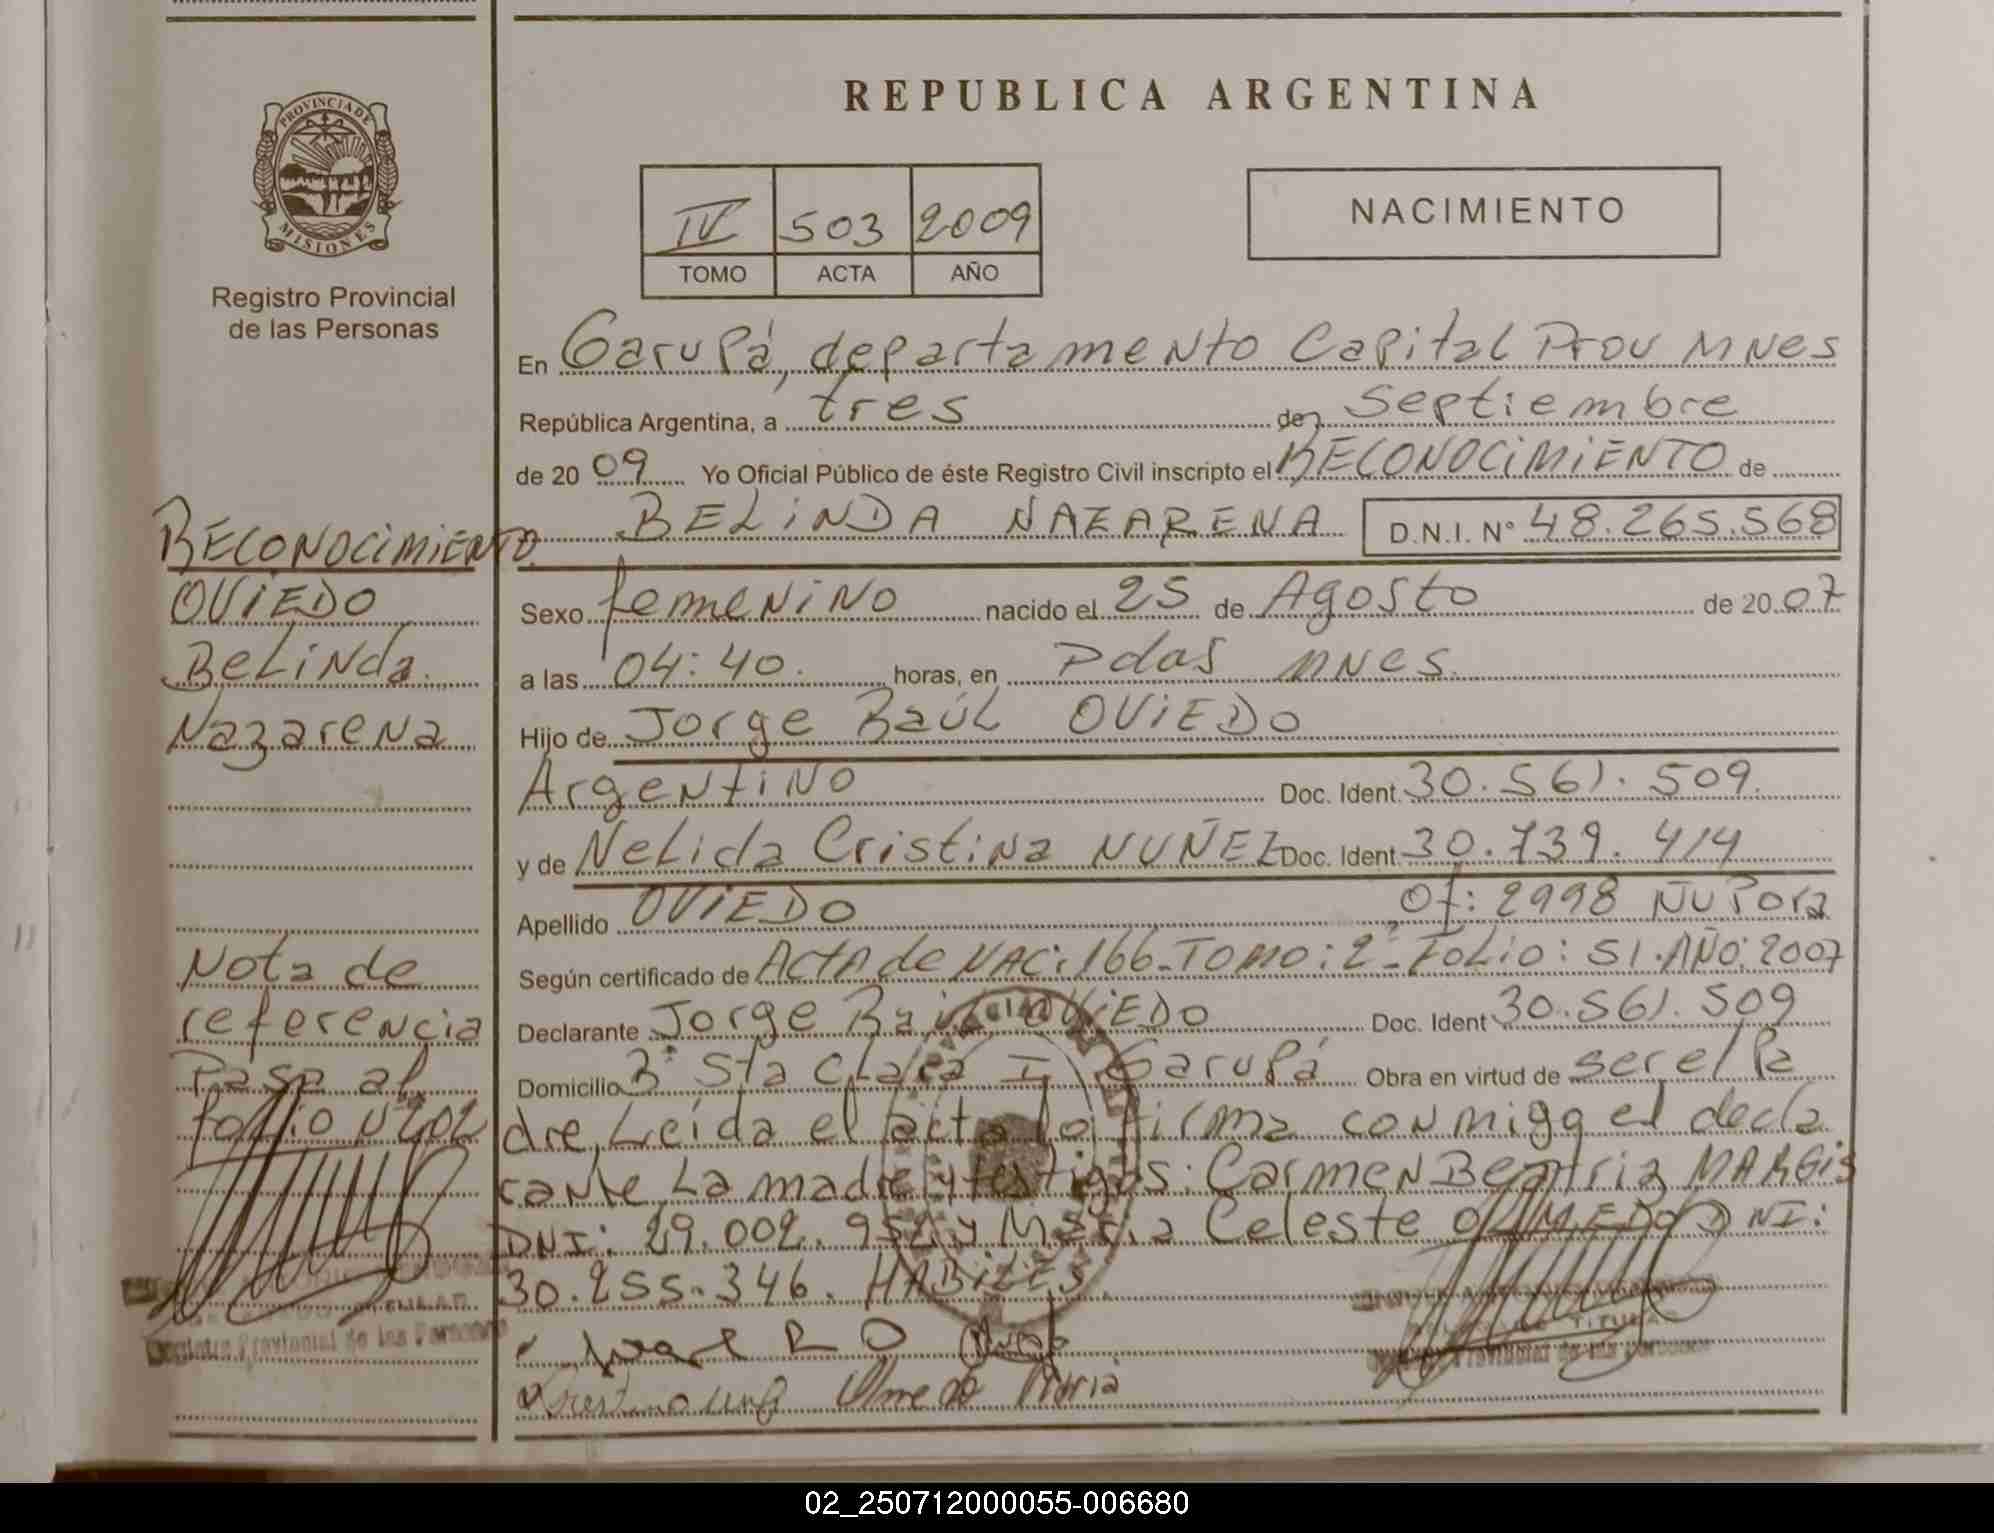 REPUBLICA ARGENTINA
PROVINCIA DE
MISIONES
Registro Provincial
de las Personas
IV 503 2009
TOMO ACTA AÑO
NACIMIENTO
En Garupá, departamento Capital Prov MNes
República Argentina, a tres de septiembre
de 2009 Yo Oficial Público de éste Registro Civil inscripto el RECONOCIMIENTO de
BELINDA NAZARENA D.N.I. Nº 48.265.568
Sexo femenino nacido el 25 de Agosto de 2007
a las 04:40. horas, en Pdas MNes.
Hijo de Jorge Raúl OVIEDO
Argentino Doc. Ident. 30.561.509.
y de Nelida Cristina NUÑEZ Doc. Ident. 30.739.414
Apellido OVIEDO Of: 2998 ÑU Pora
Según certificado de Acta de NAC: 166-TOMO: 2º-Folio: 51.AÑO: 2007
Declarante Jorge Raúl OVIEDO Doc. Ident 30.561.509
Domicilio Bº Sta Clara I Garupá Obra en virtud de ser el Pa
dre, Leída el acta la firma conmigo el decla
rante La madre y testigos: Carmen Beatriz MARGIS
DNI: 29.002. y María Celeste OLMEDO DNI:
30.255.346. HABILES.
Jorge R O
Olmedo Maria
RECONOCIMIENTO
OVIEDO
Belinda
Nazarena
Nota de
referencia
Pasa al
folio Nº 202
TITULAR
Registro Provincial de las Personas
TITULAR
Provincial de las Personas
02_250712000055-006680